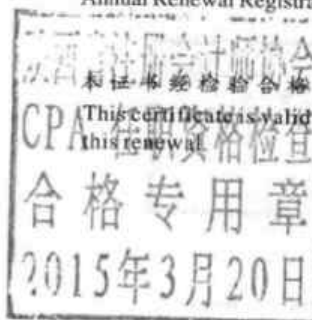 Annual Renewal Registra
西 注册会计师协会
本证书经检验合格
This certificate is valid
this renewal.
CPA 任职资格检查
合格专用章
2015年3月20日